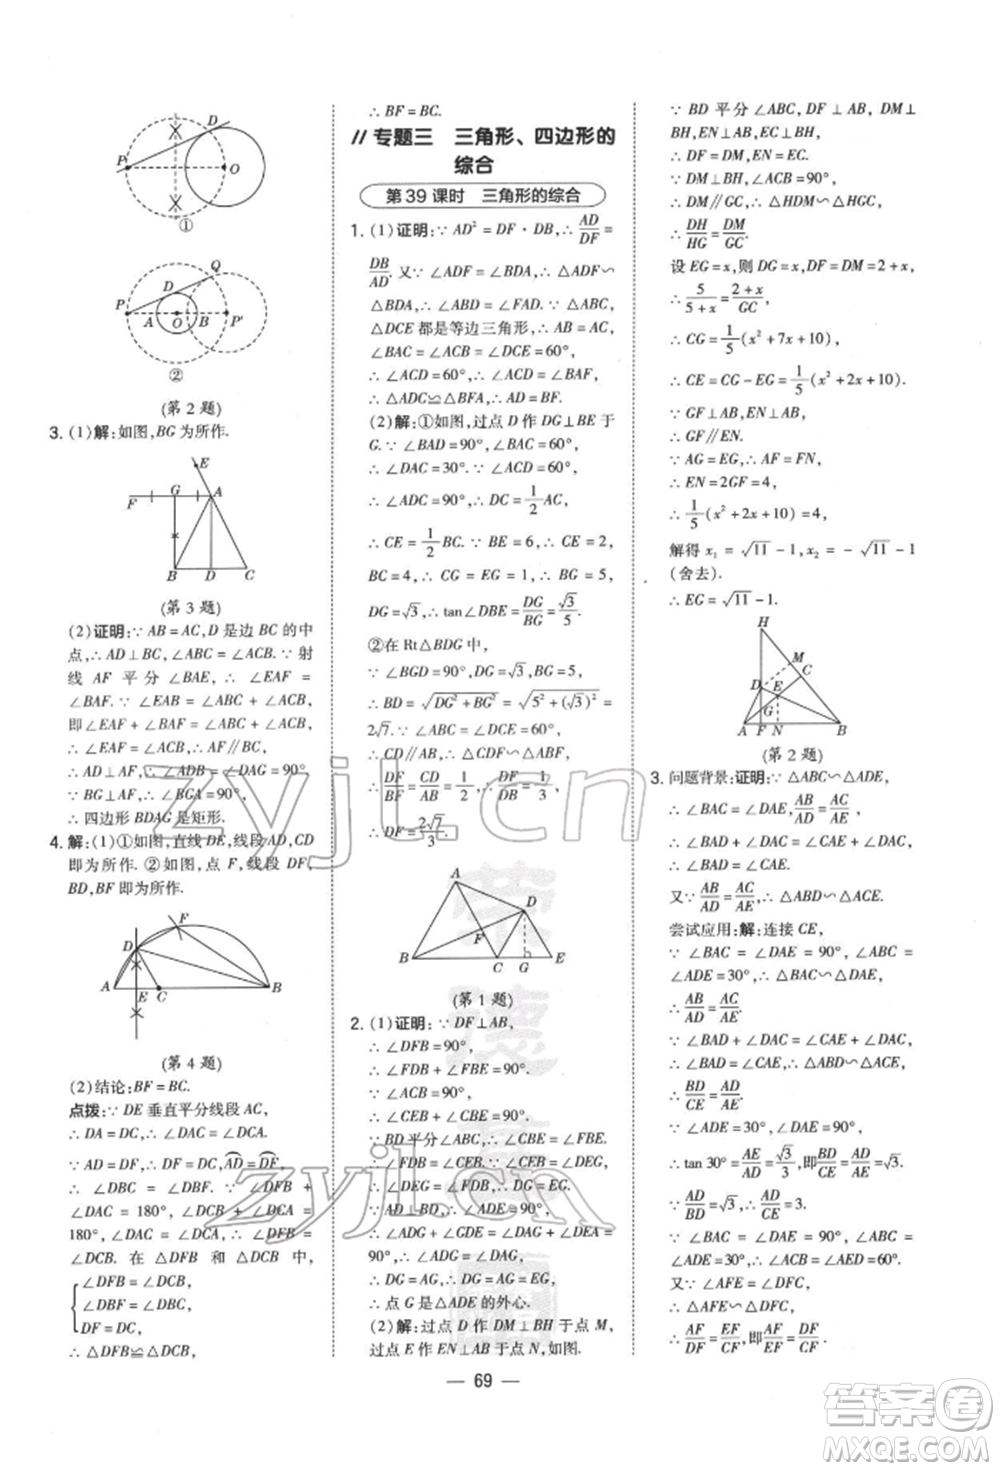 D
P
O
①
Q
D
P
A
O
B
P'
②
(第 2 题)
3. (1)解:如图,BG 为所作.
E
G
A
F
B
D
C
(第 3 题)
(2)证明:∵ AB = AC,D 是边 BC 的中
点,∴ AD⊥BC,∠ABC = ∠ACB. ∵ 射
线 AF 平分 ∠BAE, ∴ ∠EAF =
∠BAF. ∵ ∠EAB = ∠ABC + ∠ACB,
即∠EAF + ∠BAF = ∠ABC + ∠ACB,
∴ ∠EAF = ∠ACB,∴ AF∥BC,
∴ AD⊥AF,∴ ∠ADB = ∠DAG = 90°,
∵ BG⊥AF,∴ ∠AGB = 90°,
∴ 四边形 BDAG 是矩形.
4. 解:(1)①如图,直线 DE,线段AD,CD
即为所作. ②如图,点 F,线段 DF,
BD,BF 即为所作.
F
D
A
E
C
B
(第 4 题)
(2)结论:BF = BC.
点拨:∵ DE 垂直平分线段 AC,
∴ DA = DC,∴ ∠DAC = ∠DCA.
∵ AD = DF,∴ DF = DC,AD = DF,
∴ ∠DBC = ∠DBF. ∵ ∠DFB +
∠DAC = 180°, ∠DCB + ∠DCA =
180°, ∠DAC = ∠DCA, ∴ ∠DFB =
∠DCB. 在 △DFB 和 △DCB 中,
∠DFB = ∠DCB,
∠DBF = ∠DBC,
DF = DC,
∴ △DFB≌△DCB,
∴ BF = BC.
// 专题三 三角形、四边形的
综合
第 39 课时 三角形的综合
1. (1)证明:∵ AD² = DF · DB,∴ AD/DF =
DB/AD. 又∵ ∠ADF = ∠BDA,∴ △ADF∽
△BDA,∴ ∠ABD = ∠FAD. ∵ △ABC,
△DCE 都是等边三角形,∴ AB = AC,
∠BAC = ∠ACB = ∠DCE = 60°,
∴ ∠ACD = 60°,∴ ∠ACD = ∠BAF,
∴ △ADC≌△BFA,∴ AD = BF.
(2)解:①如图,过点 D 作 DG⊥BE 于
G. ∵ ∠BAD = 90°,∠BAC = 60°,
∴ ∠DAC = 30°. ∵ ∠ACD = 60°,
∴ ∠ADC = 90°,∴ DC = 1/2 AC,
∴ CE = 1/2 BC. ∵ BE = 6,∴ CE = 2,
BC = 4,∴ CG = EG = 1,∴ BG = 5,
DG = √3,∴ tan∠DBE = DG/BG = √3/5.
②在 Rt△BDG 中,
∵ ∠BGD = 90°,DG = √3,BG = 5,
∴ BD = √(DG² + BG²) = √(5² + (√3)²) =
2√7. ∵ ∠ABC = ∠DCE = 60°,
∴ CD∥AB,∴ △CDF∽△ABF,
∴ DF/BF = CD/AB = 1/2,∴ DF/BD = 1/3,
∴ DF = 2√7/3.
A
D
F
B
C
G
E
(第 1 题)
2. (1)证明:∵ DF⊥AB,
∴ ∠DFB = 90°,
∴ ∠FDB + ∠DBF = 90°.
∵ ∠ACB = 90°,
∴ ∠CEB + ∠CBE = 90°,
∵ BD 平分∠ABC,∴ ∠CBE = ∠DBF,
∴ ∠FDB = ∠CEB. ∵ ∠CEB = ∠DEG,
∴ ∠DEG = ∠FDB,∴ DG = EG.
∵ AD⊥BD,∴ ∠ADG + ∠GDE =
∠DAG + ∠DEG = 90°,
∴ ∠DAG = ∠ADG,
∴ DG = AG,∴ DG = AG = EG,
∴ 点 G 是△ADE 的外心.
(2)解:过点 D 作 DM⊥BH 于点 M,
过点 E 作 EN⊥AB 于点 N,如图.
∵ BD 平分∠ABC,DF⊥AB,DM⊥
BH,EN⊥AB,∠ACB = 90°,
∴ DF = DM,EN = EC. ∵ ∠ACB = 90°,
∴ DM∥GC,∴ △HDM∽△HGC,
∴ DH/HG = DM/GC.
设 EG = x,则 DG = x,∴ DF = DM = 2 + x,
∴ 5/(5+x) = (2+x)/GC,
∴ CG = 1/5(x² + 7x + 10),
∴ CE = CG − EG = 1/5(x² + 2x + 10).
∵ GF⊥AB,EN⊥AB,
∴ GF∥EN.
∵ AG = EG,∴ AF = FN,
∴ EN = 2GF = 4,
∴ 1/5(x² + 2x + 10) = 4,
解得 x₁ = √11 − 1,x₂ = − √11 − 1
(舍去).
∴ EG = √11 − 1.
H
M
C
D
E
G
A
F
N
B
(第 2 题)
3. 问题背景:证明:∵ △ABC∽△ADE,
∴ ∠BAC = ∠DAE,AB/AD = AC/AE,
∴ ∠BAD = ∠CAE.
又∵ AB/AC = AD/AE,∴ △ABD∽△ACE.
尝试应用:解:连接 CE,
∵ ∠BAC = ∠DAE = 90°,∠ABC =
∠ADE = 30°,∴ △ABC∽△ADE,
∴ AB/AD = AC/AE.
∵ ∠BAD + ∠DAC = ∠CAE + ∠DAC,
∴ ∠BAD = ∠CAE,∴ △BAD∽△CAE,
∴ BD/CE = AD/AE.
∵ ∠ADE = 30°,∠DAE = 90°,
∴ tan 30° = AE/AD = √3/3,即 BD/CE = AD/AE = √3.
∵ AD/BD = √3,∴ AD/CE = 3.
∵ ∠BAC = ∠DAE = 90°,∠ABC =
∠ADE = 30°,∴ ∠ACE = ∠AED = 60°.
又∵ ∠AFE = ∠DFC,
∴ △AFE∽△DFC,
∴ AF/DF = EF/CF,即 AF/EF = DF/CF.
— 69 —
zyjl.cn
zyjl.cn
答案圈
MXQE.COM